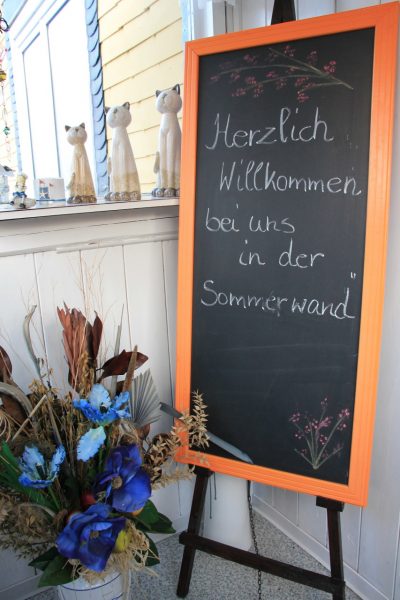 Herzlich
Willkommen
bei uns
in der
Sommerwand"